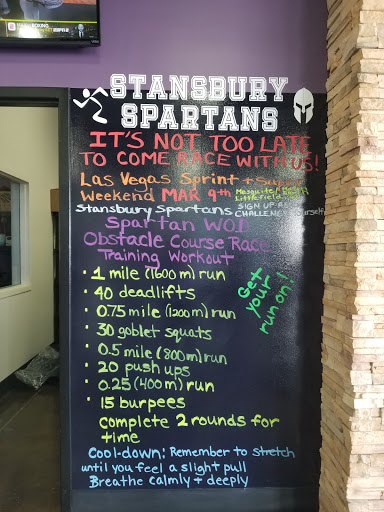 STANSBURY
SPARTANS
IT'S NOT TOO LATE
TO COME RACE WITH US!
Las Vegas Sprint + Super
Weekend MAR 9th
Stansbury Spartans
SIGN UP &
CHALLENGE
Spartan WOD
Obstacle Course Race
Training Workout
• 1 mile (1600 m) run
• 40 deadlifts
• 0.75 mile (1200 m) run
• 30 goblet squats
• 0.5 mile (800 m) run
• 20 push ups
• 0.25 (400 m) run
• 15 burpees
complete 2 rounds for
time
Get
your
run on!
Cool-down: Remember to stretch
until you feel a slight pull
Breathe calmly + deeply